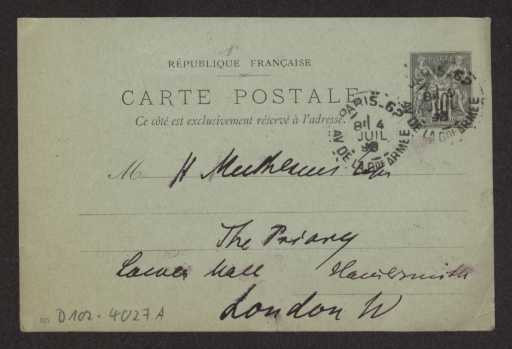 RÉPUBLIQUE FRANÇAISE
CARTE POSTALE
Ce côté est exclusivement réservé à l'adresse.
PARIS-62
8E 4
JUIL
98
AV. DE LA GDE ARMÉE
M H Muthesius Esqu
The Priory
Lower Mall Hammersmith
London W
D102-4027A